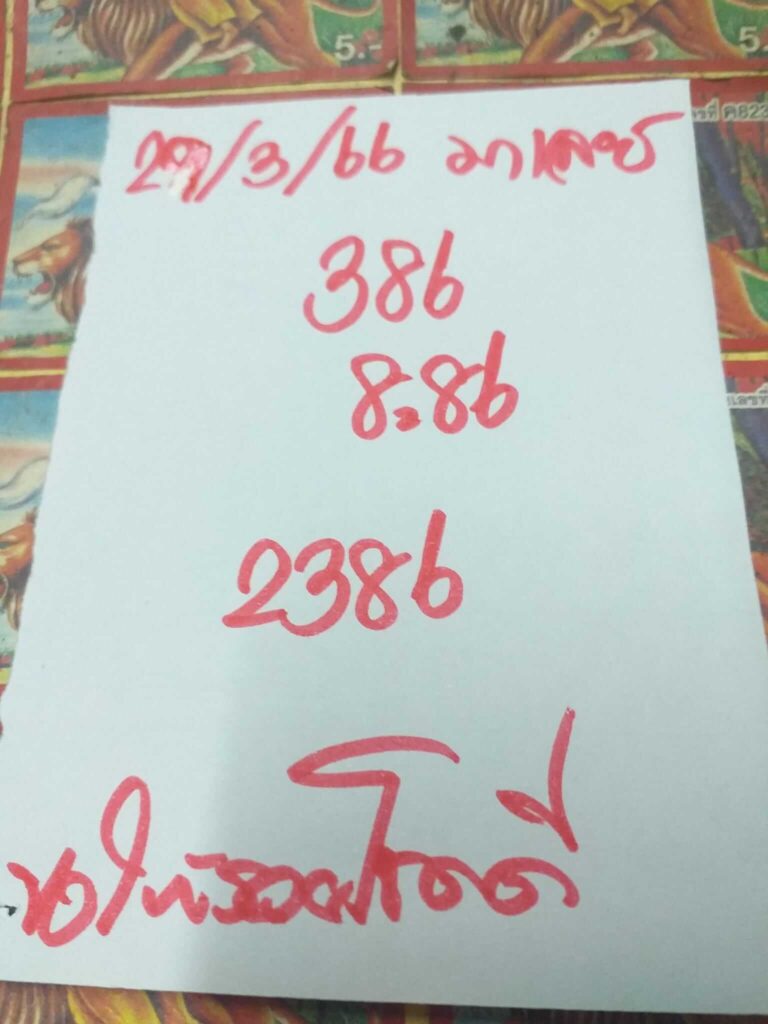 5.-
5.
ฅ823
29/3/66 มาเลย์
386
8:86
เลขที่
2386
ขอให้รวยโชคดี